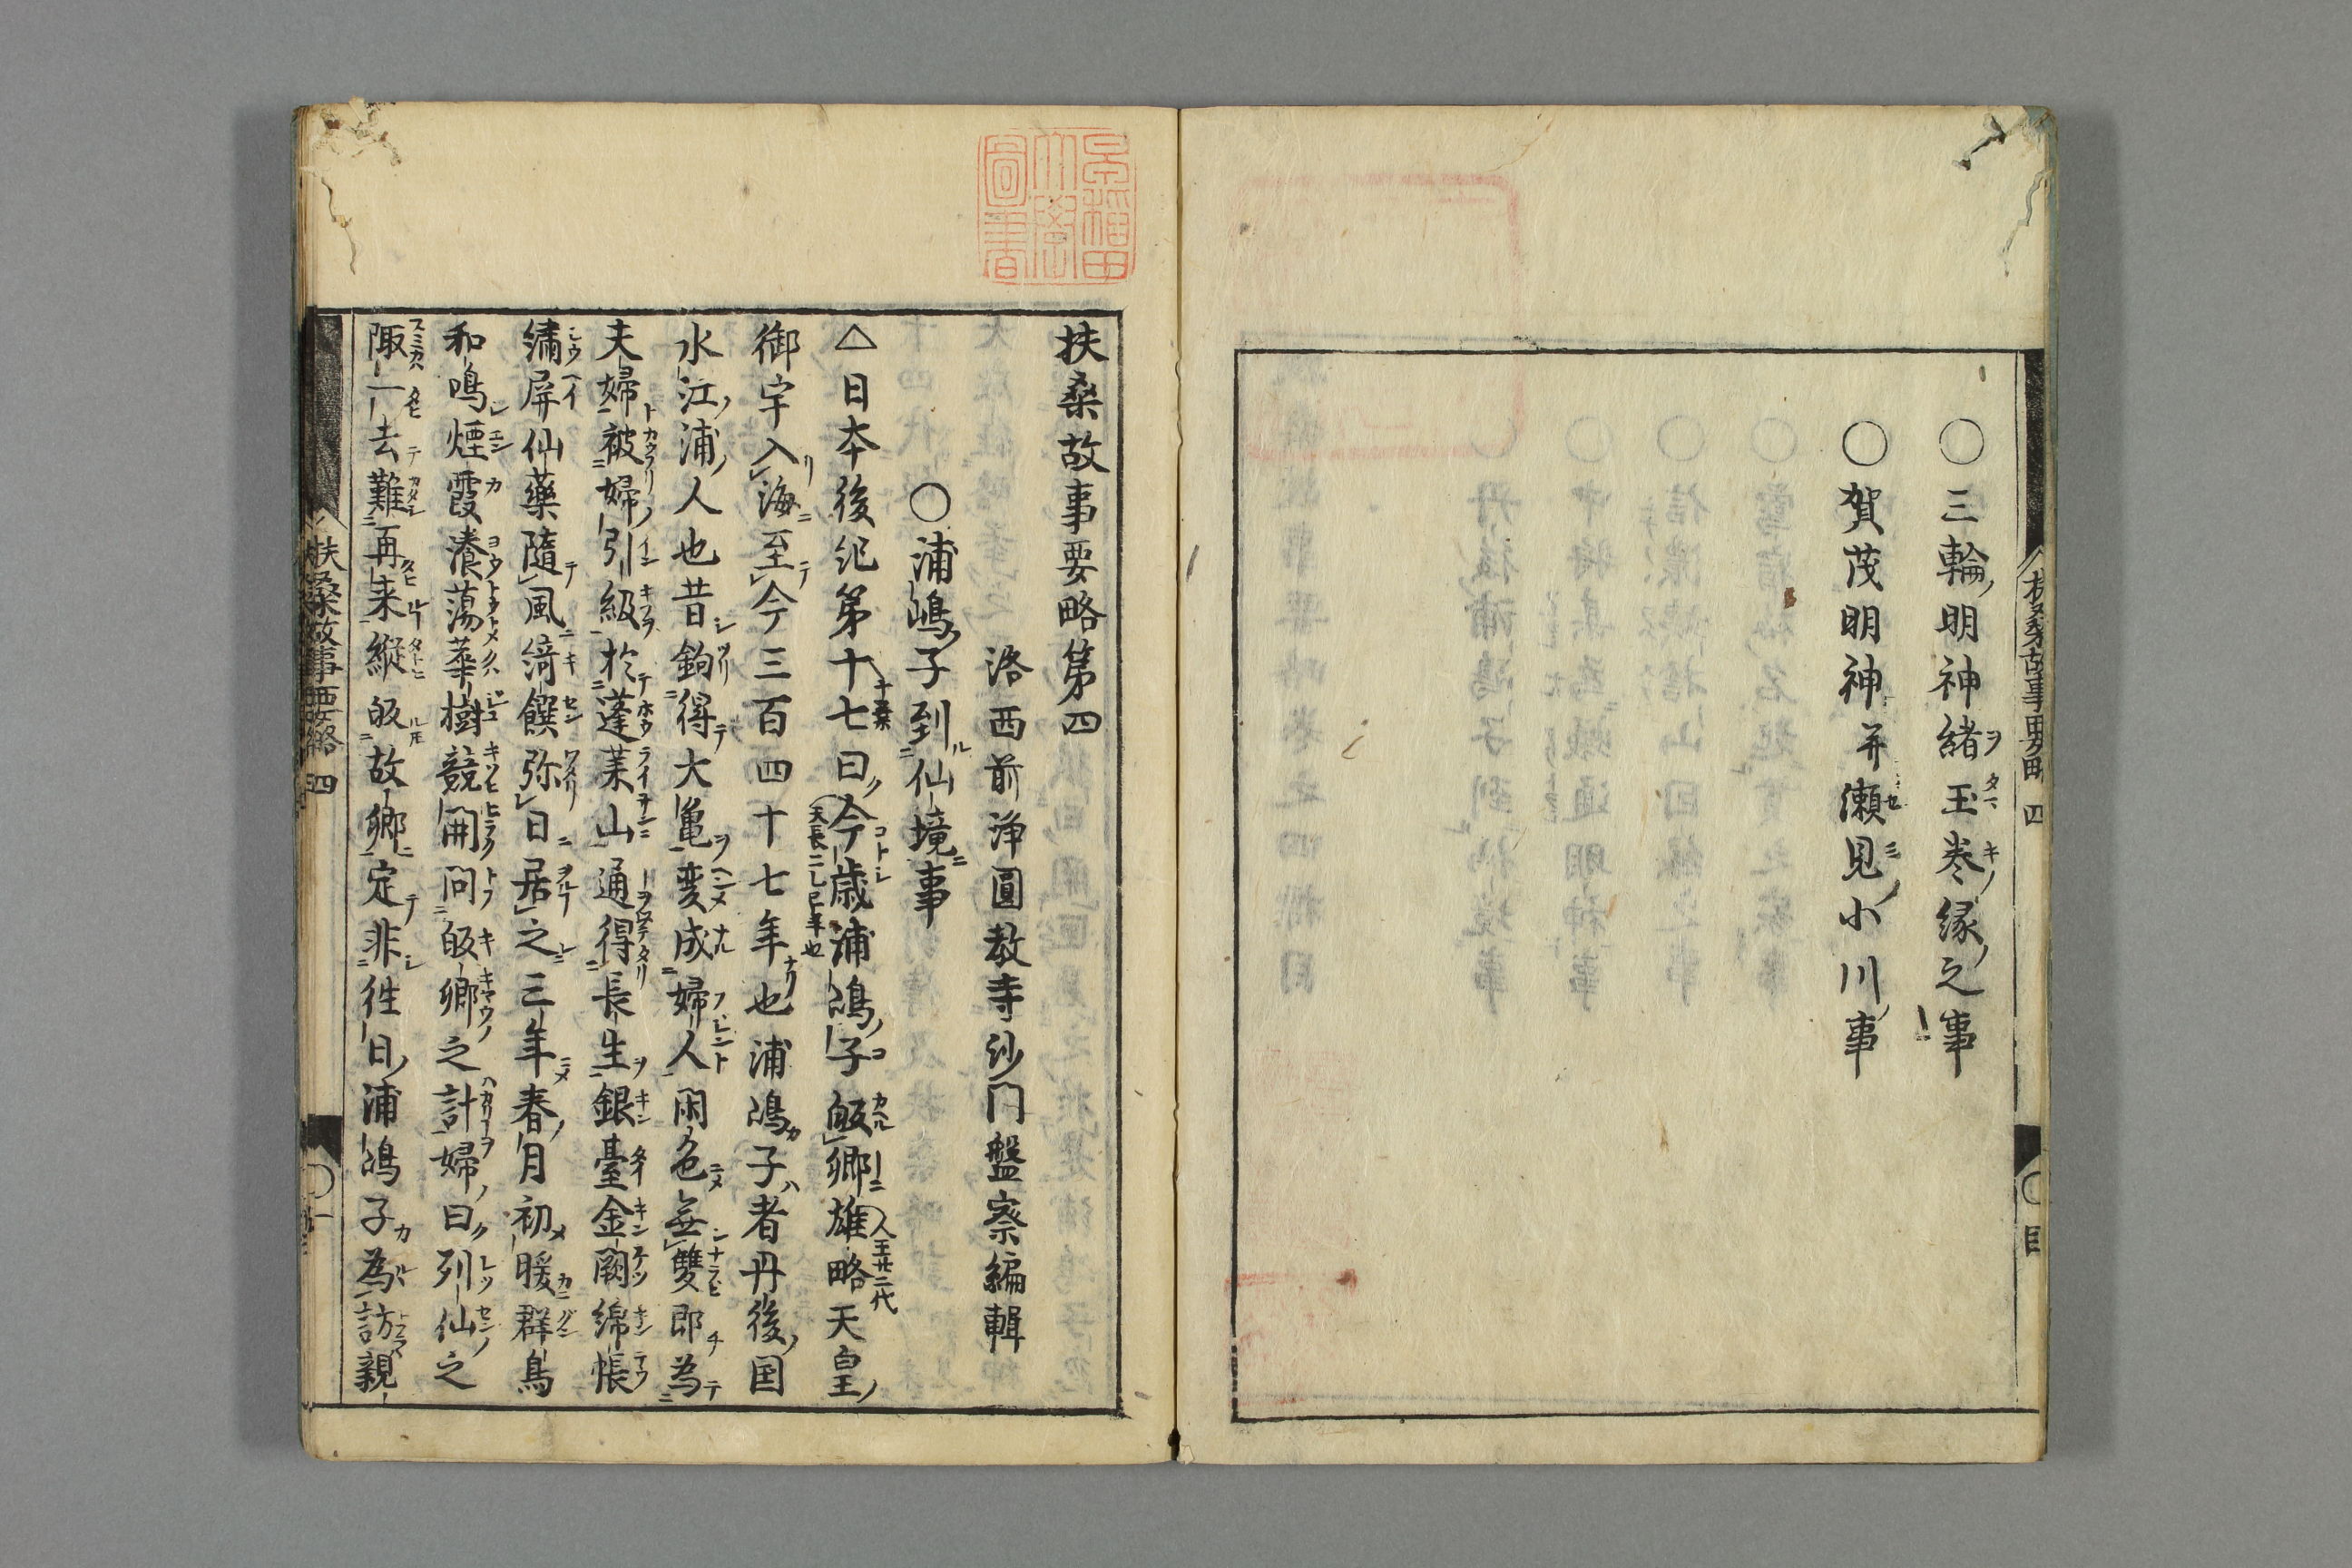 〇三輪明神緒玉巻縁之事
〇賀茂明神并瀬見小川事
扶桑故事要略 四
扶桑故事要略第四
洛西前浄圓教寺沙門盤察編輯
〇浦嶋子到仙境事
△日本後紀第十七曰今歳浦嶋子皈郷雄略天皇
御宇入海至今三百四十七年也浦嶋子者丹後国
水江浦人也昔鉤得大亀変成婦人閑色無雙即為
夫婦被婦引級於蓬莱山通得長生銀臺金闕綿帳
繡屏仙藥隨風綺饌弥日居之三年春月初暖群鳥
和鳴煙霞瀁蕩華樹競開問皈郷之計婦曰列仙之
陬一去難再来縦皈故郷定非徃日浦嶋子為訪親
扶桑故事要略 四
早稲田大學圖書